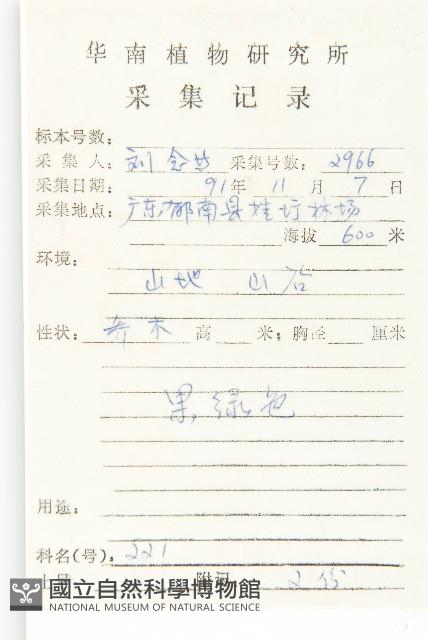 华南植物研究所
采集记录
标本号数:
采集人: 刘念 采集号数: 2966
采集日期: 91年 11月 7日
采集地点: 广东郁南县桂圩林场
海拔 600 米
环境:
山地 山谷
性状: 乔木 高 米; 胸径 厘米
果绿色
用途:
科名(号). 221
附记 2份
國立自然科學博物館
NATIONAL MUSEUM OF NATURAL SCIENCE